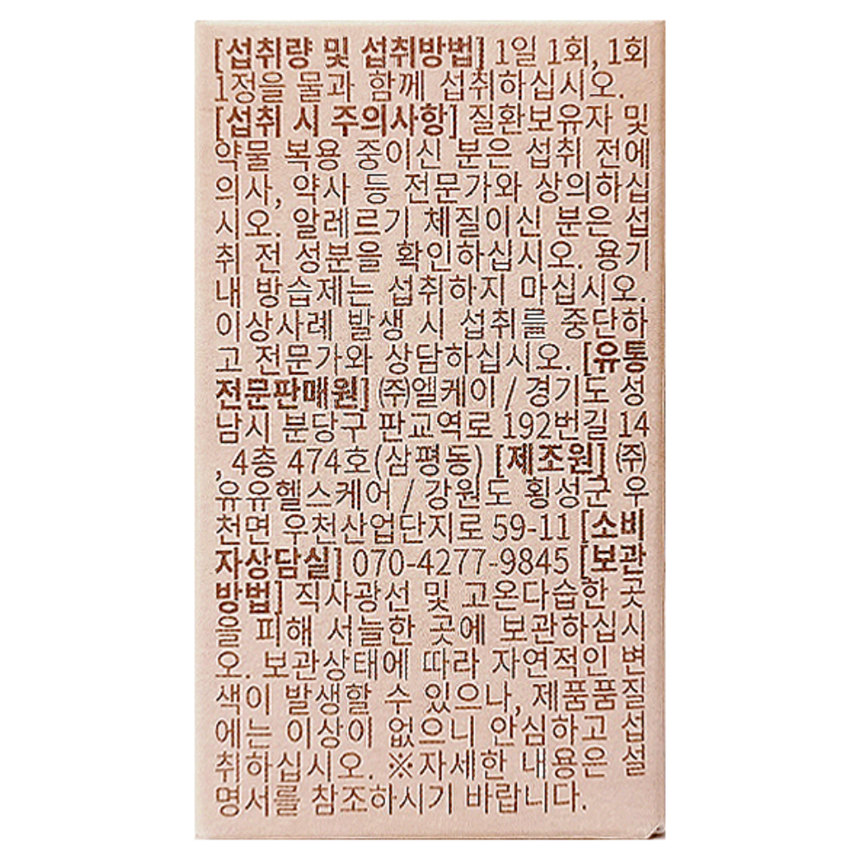 [섭취량 및 섭취방법] 1일 1회, 1회
1정을 물과 함께 섭취하십시오.
[섭취 시 주의사항] 질환보유자 및
약물 복용 중이신 분은 섭취 전에
의사, 약사 등 전문가와 상의하십
시오. 알레르기 체질이신 분은 섭
취 전 성분을 확인하십시오. 용기
내 방습제는 섭취하지 마십시오.
이상사례 발생 시 섭취를 중단하
고 전문가와 상담하십시오. [유통
전문판매원] ㈜엘케이 / 경기도 성
남시 분당구 판교역로 192번길 14
, 4층 474호(삼평동) [제조원] ㈜
유유헬스케어 / 강원도 횡성군 우
천면 우천산업단지로 59-11 [소비
자상담실] 070-4277-9845 [보관
방법] 직사광선 및 고온다습한 곳
을 피해 서늘한 곳에 보관하십시
오. 보관상태에 따라 자연적인 변
색이 발생할 수 있으나, 제품품질
에는 이상이 없으니 안심하고 섭
취하십시오. ※자세한 내용은 설
명서를 참조하시기 바랍니다.